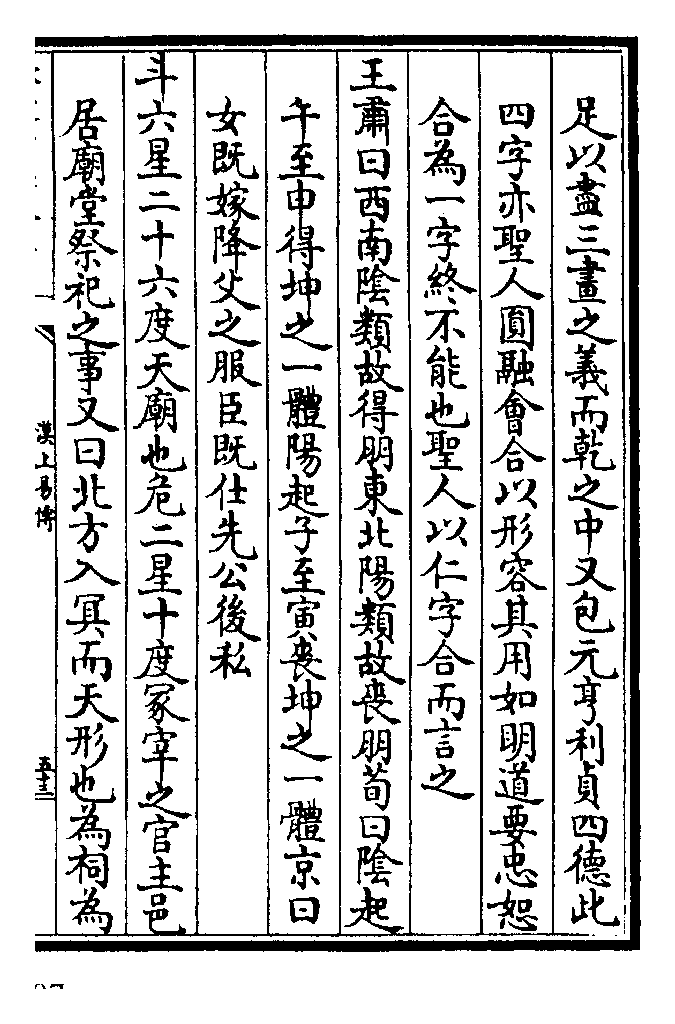 足以盡三畫之義而乾之中又包元亨利貞四德此
四字亦聖人圓融會合以形容其用如明道要忠恕
合為一字終不能也聖人以仁字合而言之
王肅曰西南陰類故得朋東北陽類故喪朋荀曰陰起
午至申得坤之一體陽起子至寅喪坤之一體京曰
女既嫁降父之服臣既仕先公後私
斗六星二十六度天廟也危二星十度冢宰之官主邑
居廟堂祭祀之事又曰北方入冥而天形也為祠為
漢上易傳